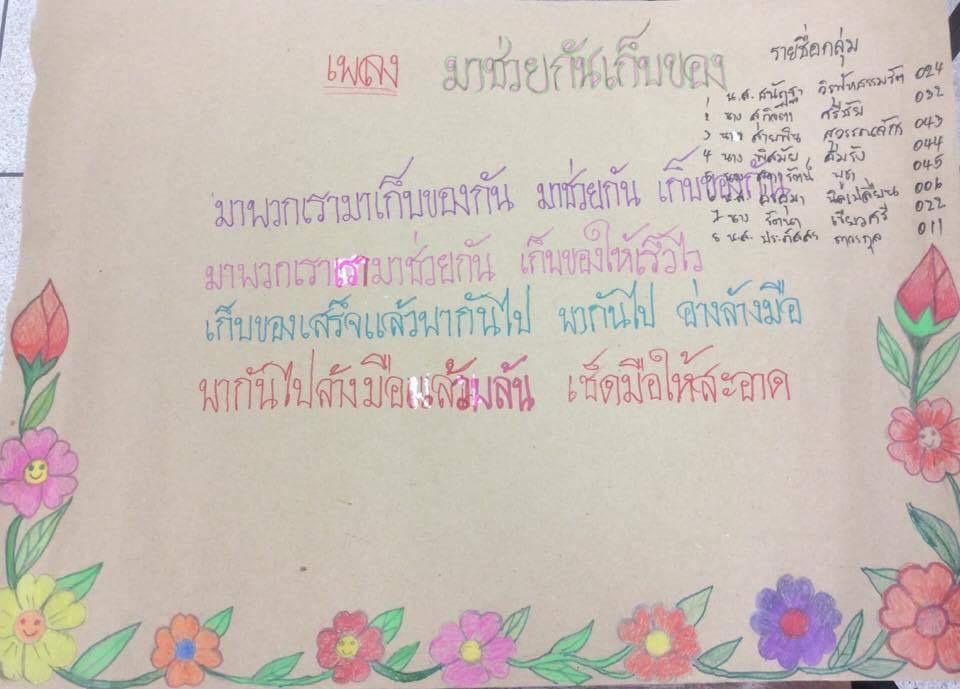 เพลง มาช่วยกันเก็บของ
มาพวกเรามาเก็บของกัน มาช่วยกัน เก็บของกัน
มาพวกเราเรามาช่วยกัน เก็บของให้เร็วไว
เก็บของเสร็จแล้วพากันไป พากันไป อ่างล้างมือ
พากันไปล้างมือแล้วพลัน เช็ดมือให้สะอาด
รายชื่อกลุ่ม
1 น.ส. 024
2 นาง สุกิจตา ศรีชัย 032
3 นาง สายพิน สุวรรณจักร 043
4 นาง พิสมัย 044
045
006
7 นาง รัตนา เขียวศรี 022
8 น.ส. ประภัสสร 011